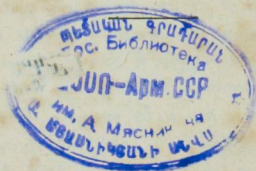 ՊԵՏԱԿԱՆ ԳՐԱԴԱՐԱՆ
Гос. Библиотека
ՀՍՍՌ-Арм.ССР
им. А. Мясник
Ա. ՄՅԱՍՆԻԿՅԱՆԻ ԱՆՎԱՆ